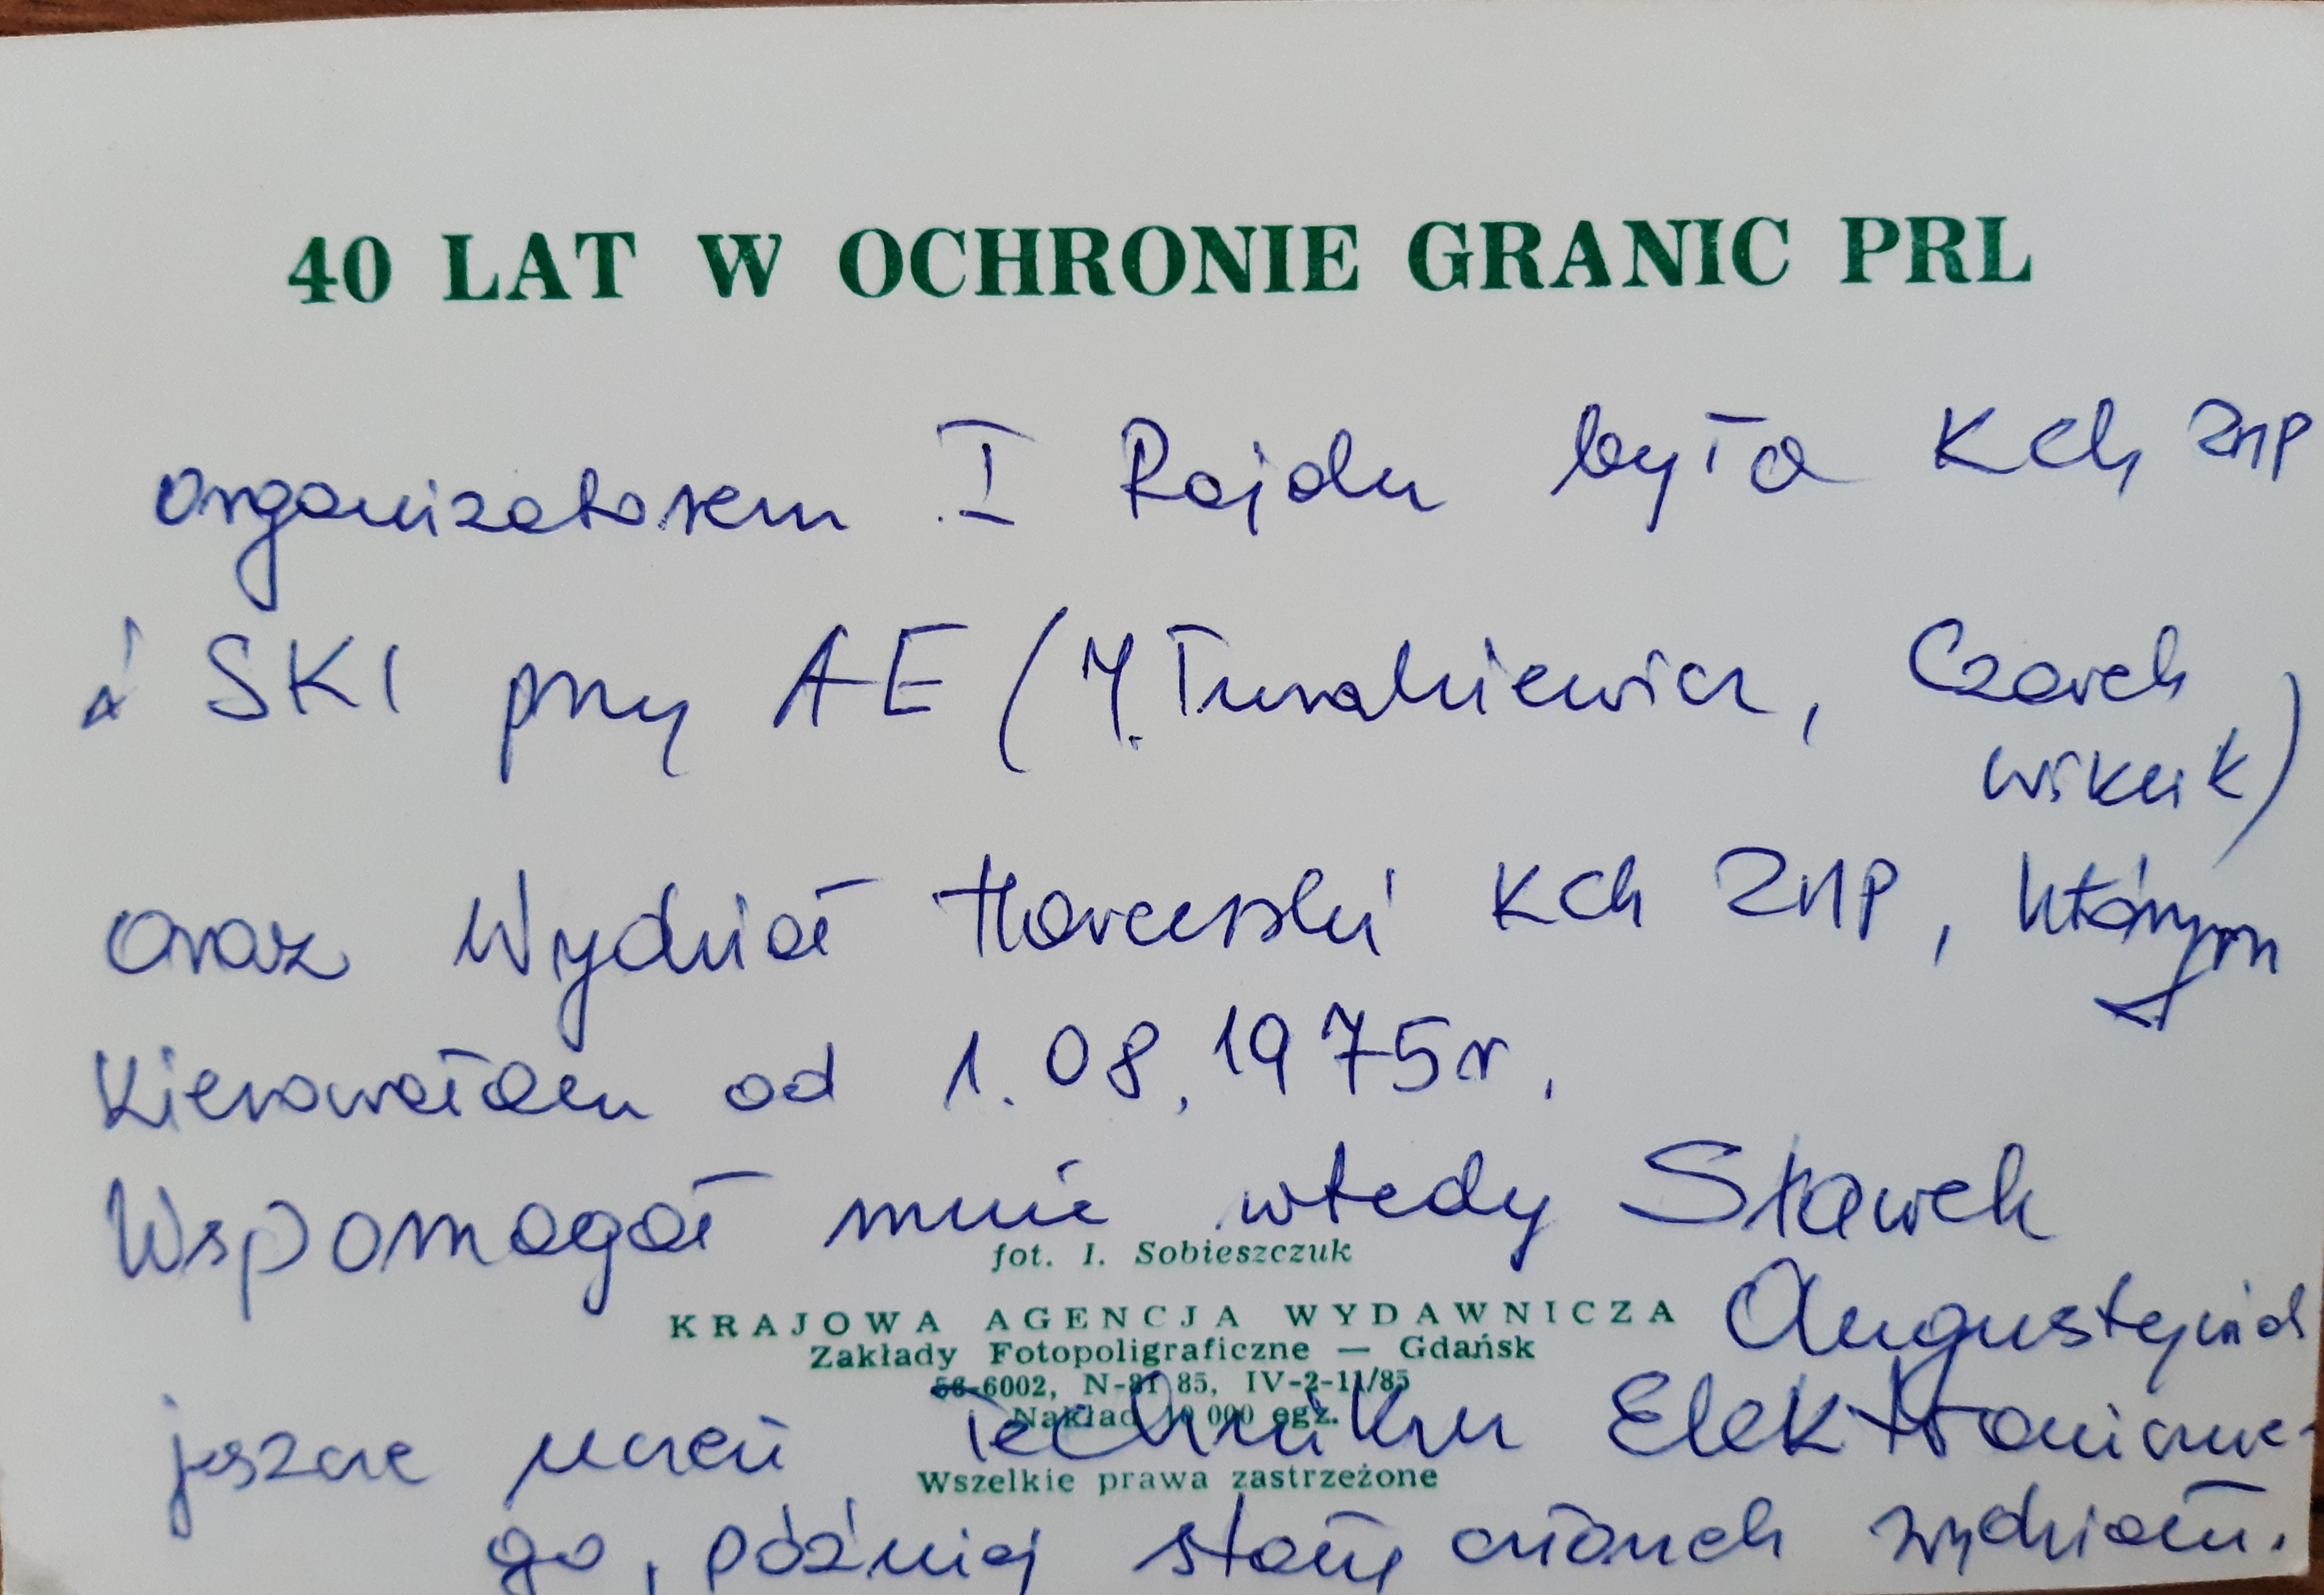 40 LAT W OCHRONIE GRANIC PRL
organizatorem I Rajdu była KCh ZNP
i SKI przy AE (J. Turakiewicz, Czarek
Wikuik)
oraz Wydział Harcerski KCh ZNP, którym
Kierowałem od 1.08.1975r.
Wspomagał mnie wtedy Sławek
fot. I. Sobieszczuk
Augustyniak
KRAJOWA AGENCJA WYDAWNICZA
Zakłady Fotopoligraficzne — Gdańsk
6002, N-81 85, IV-2-11/85
Nakład 10 000 egz.
jeszcze uczeń Technikum Elektroniczne-
Wszelkie prawa zastrzeżone
go, później stały członek wydziału.